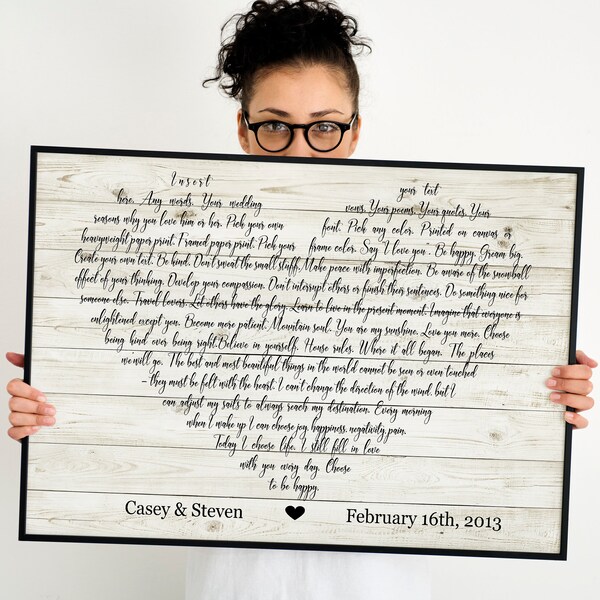 Insert your text
here. Any words. Your wedding vows. Your poems. Your quotes. Your
reasons why you love him or her. Pick your own font. Pick any color. Printed on canvas or
heavyweight paper print. Framed paper print. Pick your frame color. Say "I love you". Be happy. Gream big.
Create your own text. Be kind. Don't sweat the small stuff. Make peace with imperfection. Be aware of the snowball
effect of your thinking. Develop your compassion. Don't interrupt others or finish their sentences. Do something nice for
someone else. Travel lovers. Let others have the glory. Learn to live in the present moment. Imagine that everyone is
enlightened except you. Become more patient. Mountain soul. You are my sunshine. Love you more. Choose
being kind over being right.Believe in yourself. House rules. Where it all began. The places
we will go. The best and most beautiful things in the world cannot be seen or even touched
- they must be felt with the heart. I can't change the direction of the wind, but I
can adjust my sails to always reach my destination. Every morning
when I wake up I can choose joy, happiness, negativity, pain.
Today I choose life. I still fill in love
with you every day. Choose
to be happy.
Casey & Steven February 16th, 2013